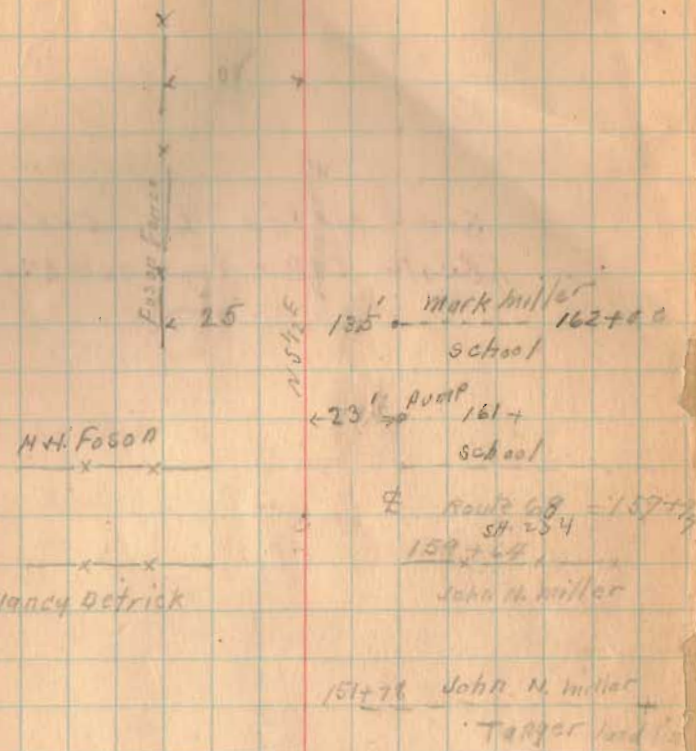 Foson Fence
25
N 5½ E
135' mark miller 162+00
school
23' Pump 161+
school
H.H. Foson
℄ Route 68 = 157+
SH. 234
159+64
John N. miller
Nancy Detrick
151+78 John N. miller
Tanger